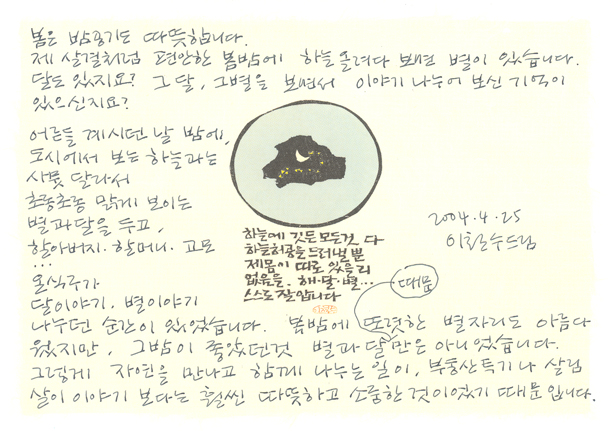 봄은 밤공기도 따뜻합니다.
제 살결처럼 편안한 봄밤에 하늘 올려다 보면 별이 있습니다.
달도 있지요? 그 달, 그 별을 보면서 이야기 나누어 보신 기억이
있으신지요?
어른들 계시던 날 밤에,
도시에서 보는 하늘과는
사뭇 달라서
초롱초롱 맑게 보이는
별과 달을 두고,
할아버지·할머니·고모
...
온식구가
달이야기, 별이야기
나누던 순간이 있었습니다. 봄밤에 또렷한 별자리도 아름다
웠지만, 그밤이 좋았던것 별과 달만은 아니었습니다.
그렇게 자연을 만나고 함께 나누는 일이, 부동산특기나 살림
살이 이야기 보다는 훨씬 따뜻하고 소중한 것이었기 때문입니다.
하늘에 깃든 모든것 다
하늘허공을 드러낼 뿐
제몸이 따로 있을리
없음을, 해·달·별···
스스로 잘 압니다
때문
2004.4.25
이철수드림